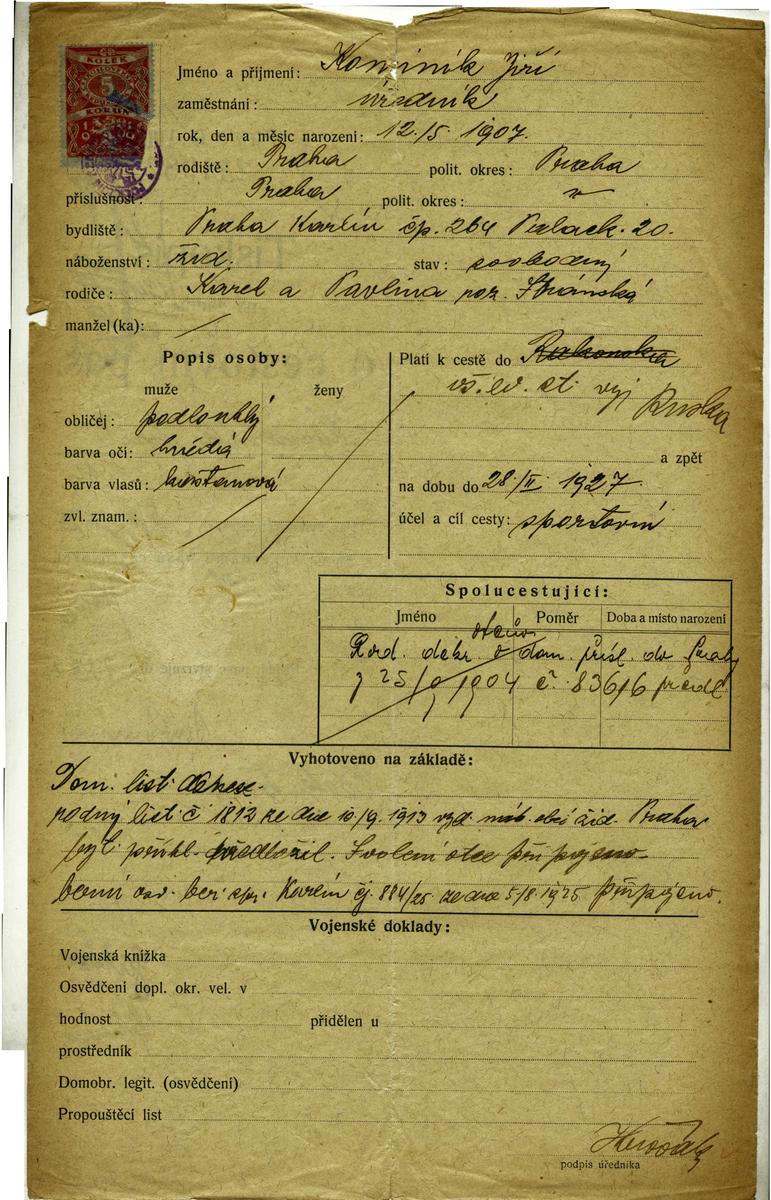 KOLEK
5
KORUN
Jméno a příjmení: Kominík Jiří
zaměstnání: úředník
rok, den a měsíc narození: 12./5. 1907.
rodiště: Praha polit. okres: Praha
příslušnost Praha polit. okres: v
bydliště: Praha Karlín čp. 264 Palack. 20.
náboženství: žid. stav: svobodný
rodiče: Karel a Pavlína roz. Stránská
manžel (ka):
Popis osoby:
muže ženy
obličej: podlouhlý
barva očí: hnědá
barva vlasů: kaštanová
zvl. znam.:
Platí k cestě do Rakouska
vš. ev. st. vyj Ruska
a zpět
na dobu do 28./II. 1927.
účel a cíl cesty: sportovní
Spolucestující:
Jméno Poměr Doba a místo narození
otcův
Rod. dekr. o dom. přísl. do Prahy
z 25/9 1904 č. 83616 předl
Vyhotoveno na základě:
Dom. list
rodný list č 1812 ze dne 10/9. 1913 vyd. náb. obcí žid. Praha
byl přihl. předložil. Svolení otce připojeno
berní osv. ber. spr. Karlín čj. 884/25 ze dne 5/8. 1925 připojeno.
Vojenské doklady:
Vojenská knížka
Osvědčení dopl. okr. vel. v
hodnost přidělen u
prostředník
Domobr. legit. (osvědčení)
Propouštěcí list
podpis úředníka